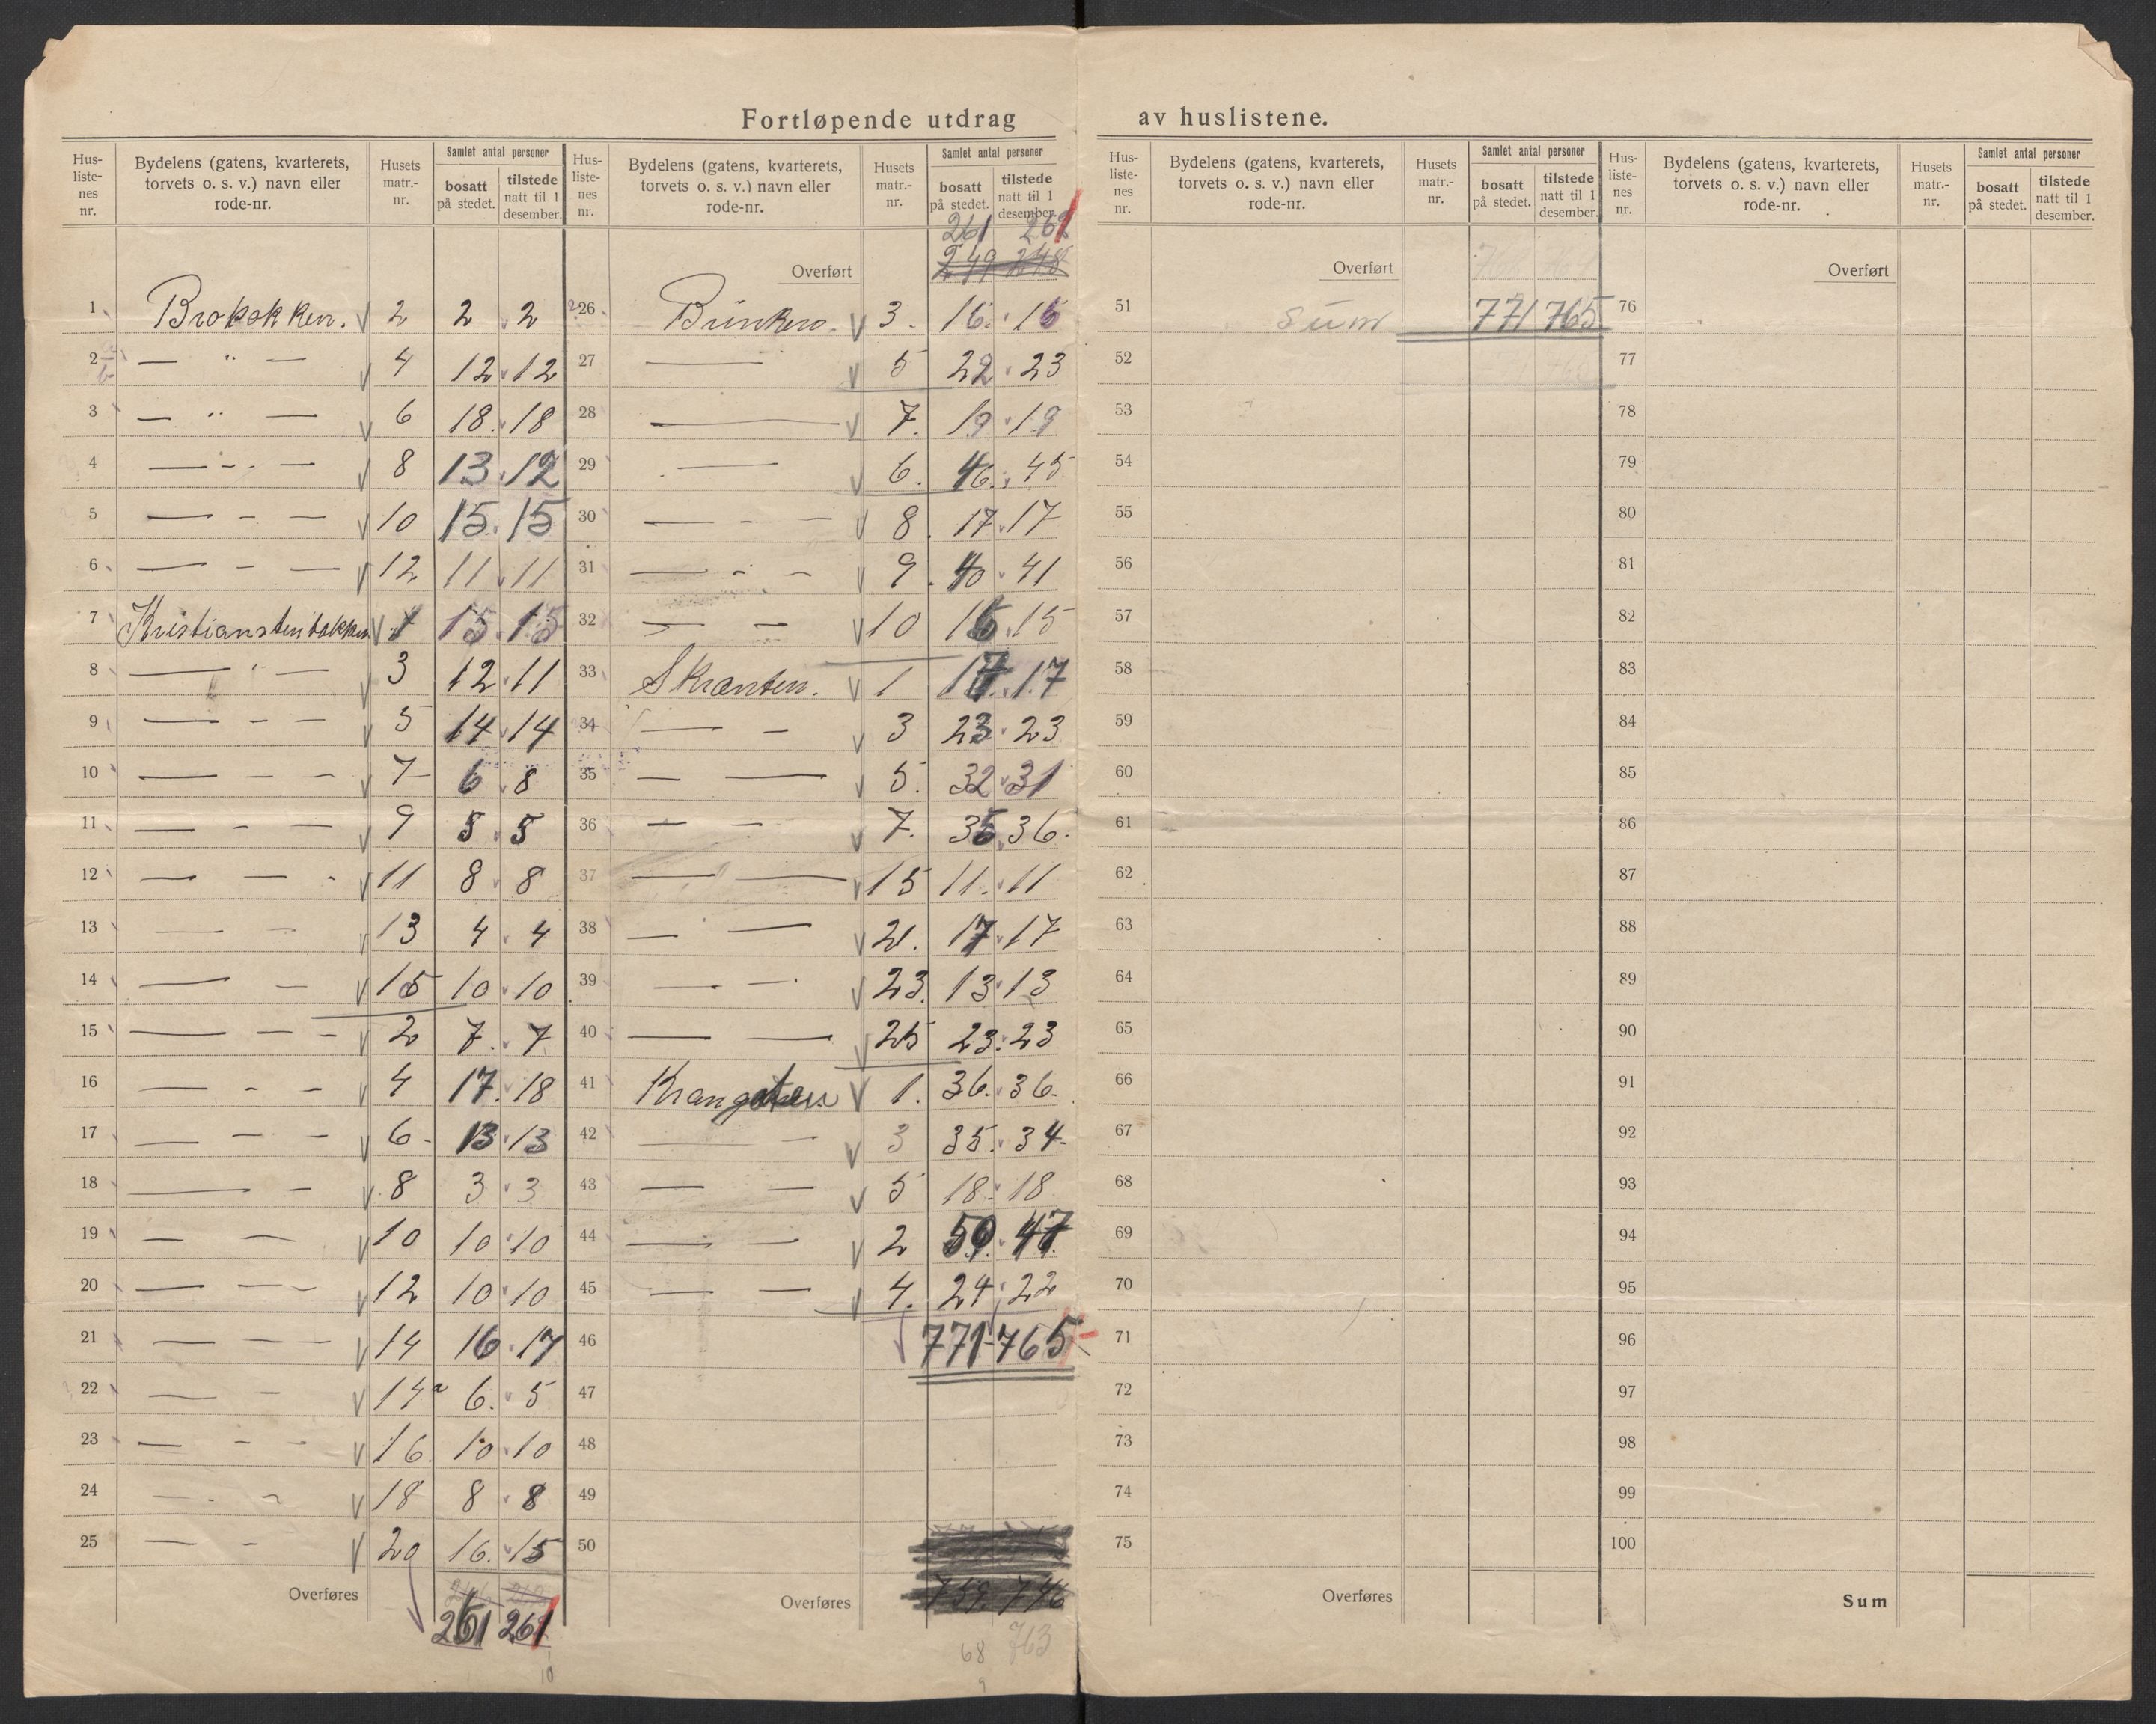 Fortløpende utdrag av huslistene.
Hus-liste-nes nr. | Bydelens (gatens, kvarterets, torvets o. s. v.) navn eller rode-nr. | Husets matr.-nr. | Samlet antal personer | bosatt på stedet. | tilstede natt til 1 desember.
1 Brobakken. 2 2 2
2 — " — 4 12 12
3 — " — 6 18 18
4 — - - — 8 13 12
5 — - — 10 15 15
6 — - — 12 11 11
7 Kristianstensbakken 1 15 15
8 — " — 3 12 11
9 — - — 5 14 14
10 — - - 7 6 8
11 — - — 9 5 5
12 — — - 11 8 8
13 — — 13 4 4
14 — - 15 10 10
15 — - - 2 7 7
16 — - - 4 17 18
17 — - - 6 13 13
18 — - 8 3 3
19 — — 10 10 10
20 — — - 12 10 10
21 — — — 14 16 17
22 — - 14a 6 5
23 — - - 16 10 10
24 — - - 18 8 8
25 — - 20 16 15
Overføres 261 261
10
Hus-liste-nes nr. | Bydelens (gatens, kvarterets, torvets o. s. v.) navn eller rode-nr. | Husets matr.-nr. | Samlet antal personer | bosatt på stedet. | tilstede natt til 1 desember.
261 261
Overført 249 248
26 3. 16 16
27 — 5 22 23
28 — 7. 19 19
29 — 6. 46 45
30 — - - 8. 17 17
31 — - - 9. 40 41
32 — - 10 15 15
33 Skranten. 1 17 17
34 — - 3 23 23
35 — — 5. 32 31
36 — - 7. 35 36.
37 — — 15 11 11
38 — — 21. 17 17
39 — - 23. 13 13
40 — — 25 23 23
41 Krangaten 1. 36. 36.
42 — - 3 35. 34
43 — — 5 18 18
44 — — 2 50 47
45 — — 4. 24 22
46 771 765
47
48
49
50
Overføres 759. 746
68 763
9
Hus-liste-nes nr. | Bydelens (gatens, kvarterets, torvets o. s. v.) navn eller rode-nr. | Husets matr.-nr. | Samlet antal personer | bosatt på stedet. | tilstede natt til 1 desember.
Overført
51 Sum 771 765
52
53
54
55
56
57
58
59
60
61
62
63
64
65
66
67
68
69
70
71
72
73
74
75
Overføres
Hus-liste-nes nr. | Bydelens (gatens, kvarterets, torvets o. s. v.) navn eller rode-nr. | Husets matr.-nr. | Samlet antal personer | bosatt på stedet. | tilstede natt til 1 desember.
Overført
76
77
78
79
80
81
82
83
84
85
86
87
88
89
90
91
92
93
94
95
96
97
98
99
100
Sum